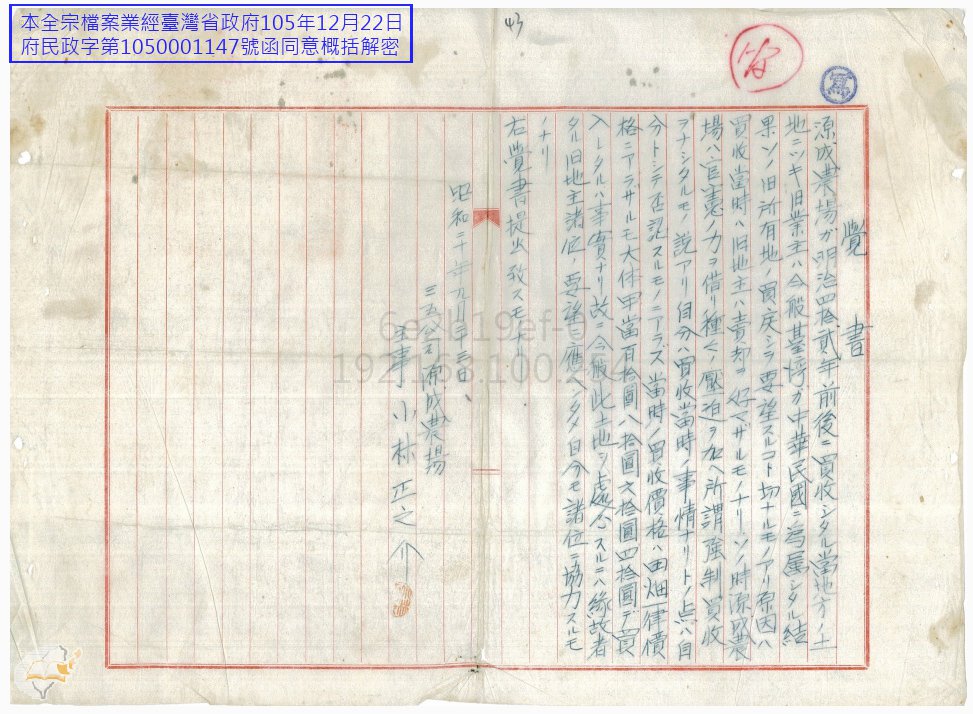 本全宗檔案業經臺灣省政府105年12月22日
府民政字第1050001147號函同意概括解密
43
覺書
源成農場ガ明治四拾貳年前後ニ買收シタル當地方ノ土
地ニツキ旧業主ハ今般臺灣ガ中華民國ニ為屬シタル結
果ソノ旧所有地ノ買戻シヲ要望スルコト切ナルモノアリ原因ハ
買收當時ハ旧地主ハ賣却ヲ好マザルモノナリシソノ時源成農
場ハ官憲ノ力ヲ借リ種々ノ壓迫ヲ加ヘ所謂強制買收
ヲナシタルモノノ說アリ自分ハ買收當時ノ事情ナリトノ点ハ自
分トシテ否認スルモノニアラズ當時ノ買收價格ハ田畑一律價
格ニアラザルモ大体甲當百拾圓八拾圓六拾圓四拾圓デ買
入レタルハ事實ナリ故ニ今般此土地ヲ處分スルニハ緣故者
タル旧地主諸氏ノ要望ニ應ヘンタメ自分モ諸位ニ協力スルモ
ノナリ
右覺書提出致スモノナリ
昭和二十年九月二十三日
三五公司源成農場
主事 小林正之介